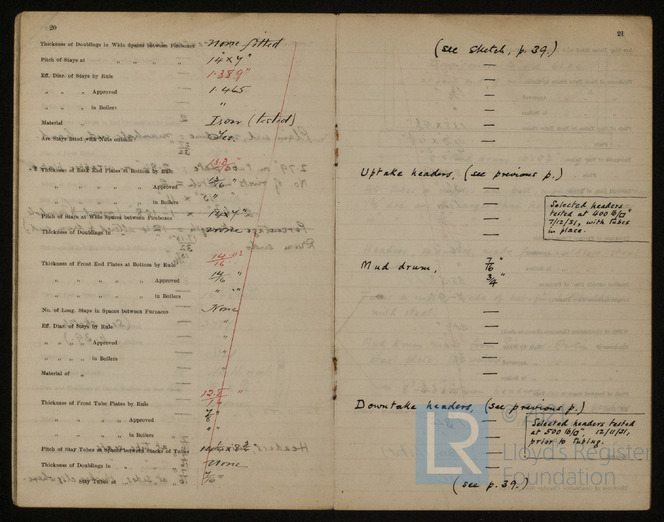 20
Thickness of Doublings in Wide Spaces between Furnaces None fitted
Pitch of Stays at " " " " 14 x 7"
Eff. Diar. of Stays by Rule 1.389"
" " " Approved 1.465
" " " in Boilers "
Material Iron (tested)
Are Stays fitted with Nuts outside? Yes.
Thickness of Back End Plates at Bottom by Rule
" " " Approved
" " " in Boilers "
Pitch of Stays at Wide Spaces between Fireboxes 14 x 7"
Thickness of Doublings in " none
Thickness of Front End Plates at Bottom by Rule
" " " Approved 14/16 "
" " " in Boilers " "
No. of Long. Stays in Spaces between Furnaces None
Eff. Diar. of Stays by Rule "
" " " Approved "
" " " in Boilers "
Material of " "
Thickness of Front Tube Plates by Rule
" " " Approved 7/8 "
" " " in Boilers "
Pitch of Stay Tubes in Spaces between Stacks of Tubes
Thickness of Doublings in " None
" Stay Tubes at "
21
(see sketch, p. 39.)
Uptake headers, (see previous p.)
Selected headers
tested at 400 lb/□"
7/12/31, with tubes
in place.
Mud drum, 7/16 "
3/4 "
Downtake headers, (see previous p.)
Selected headers tested
at 500 lb/□", 12/11/31,
prior to tubing.
(see p. 39.)
LR
Lloyd's Register
Foundation